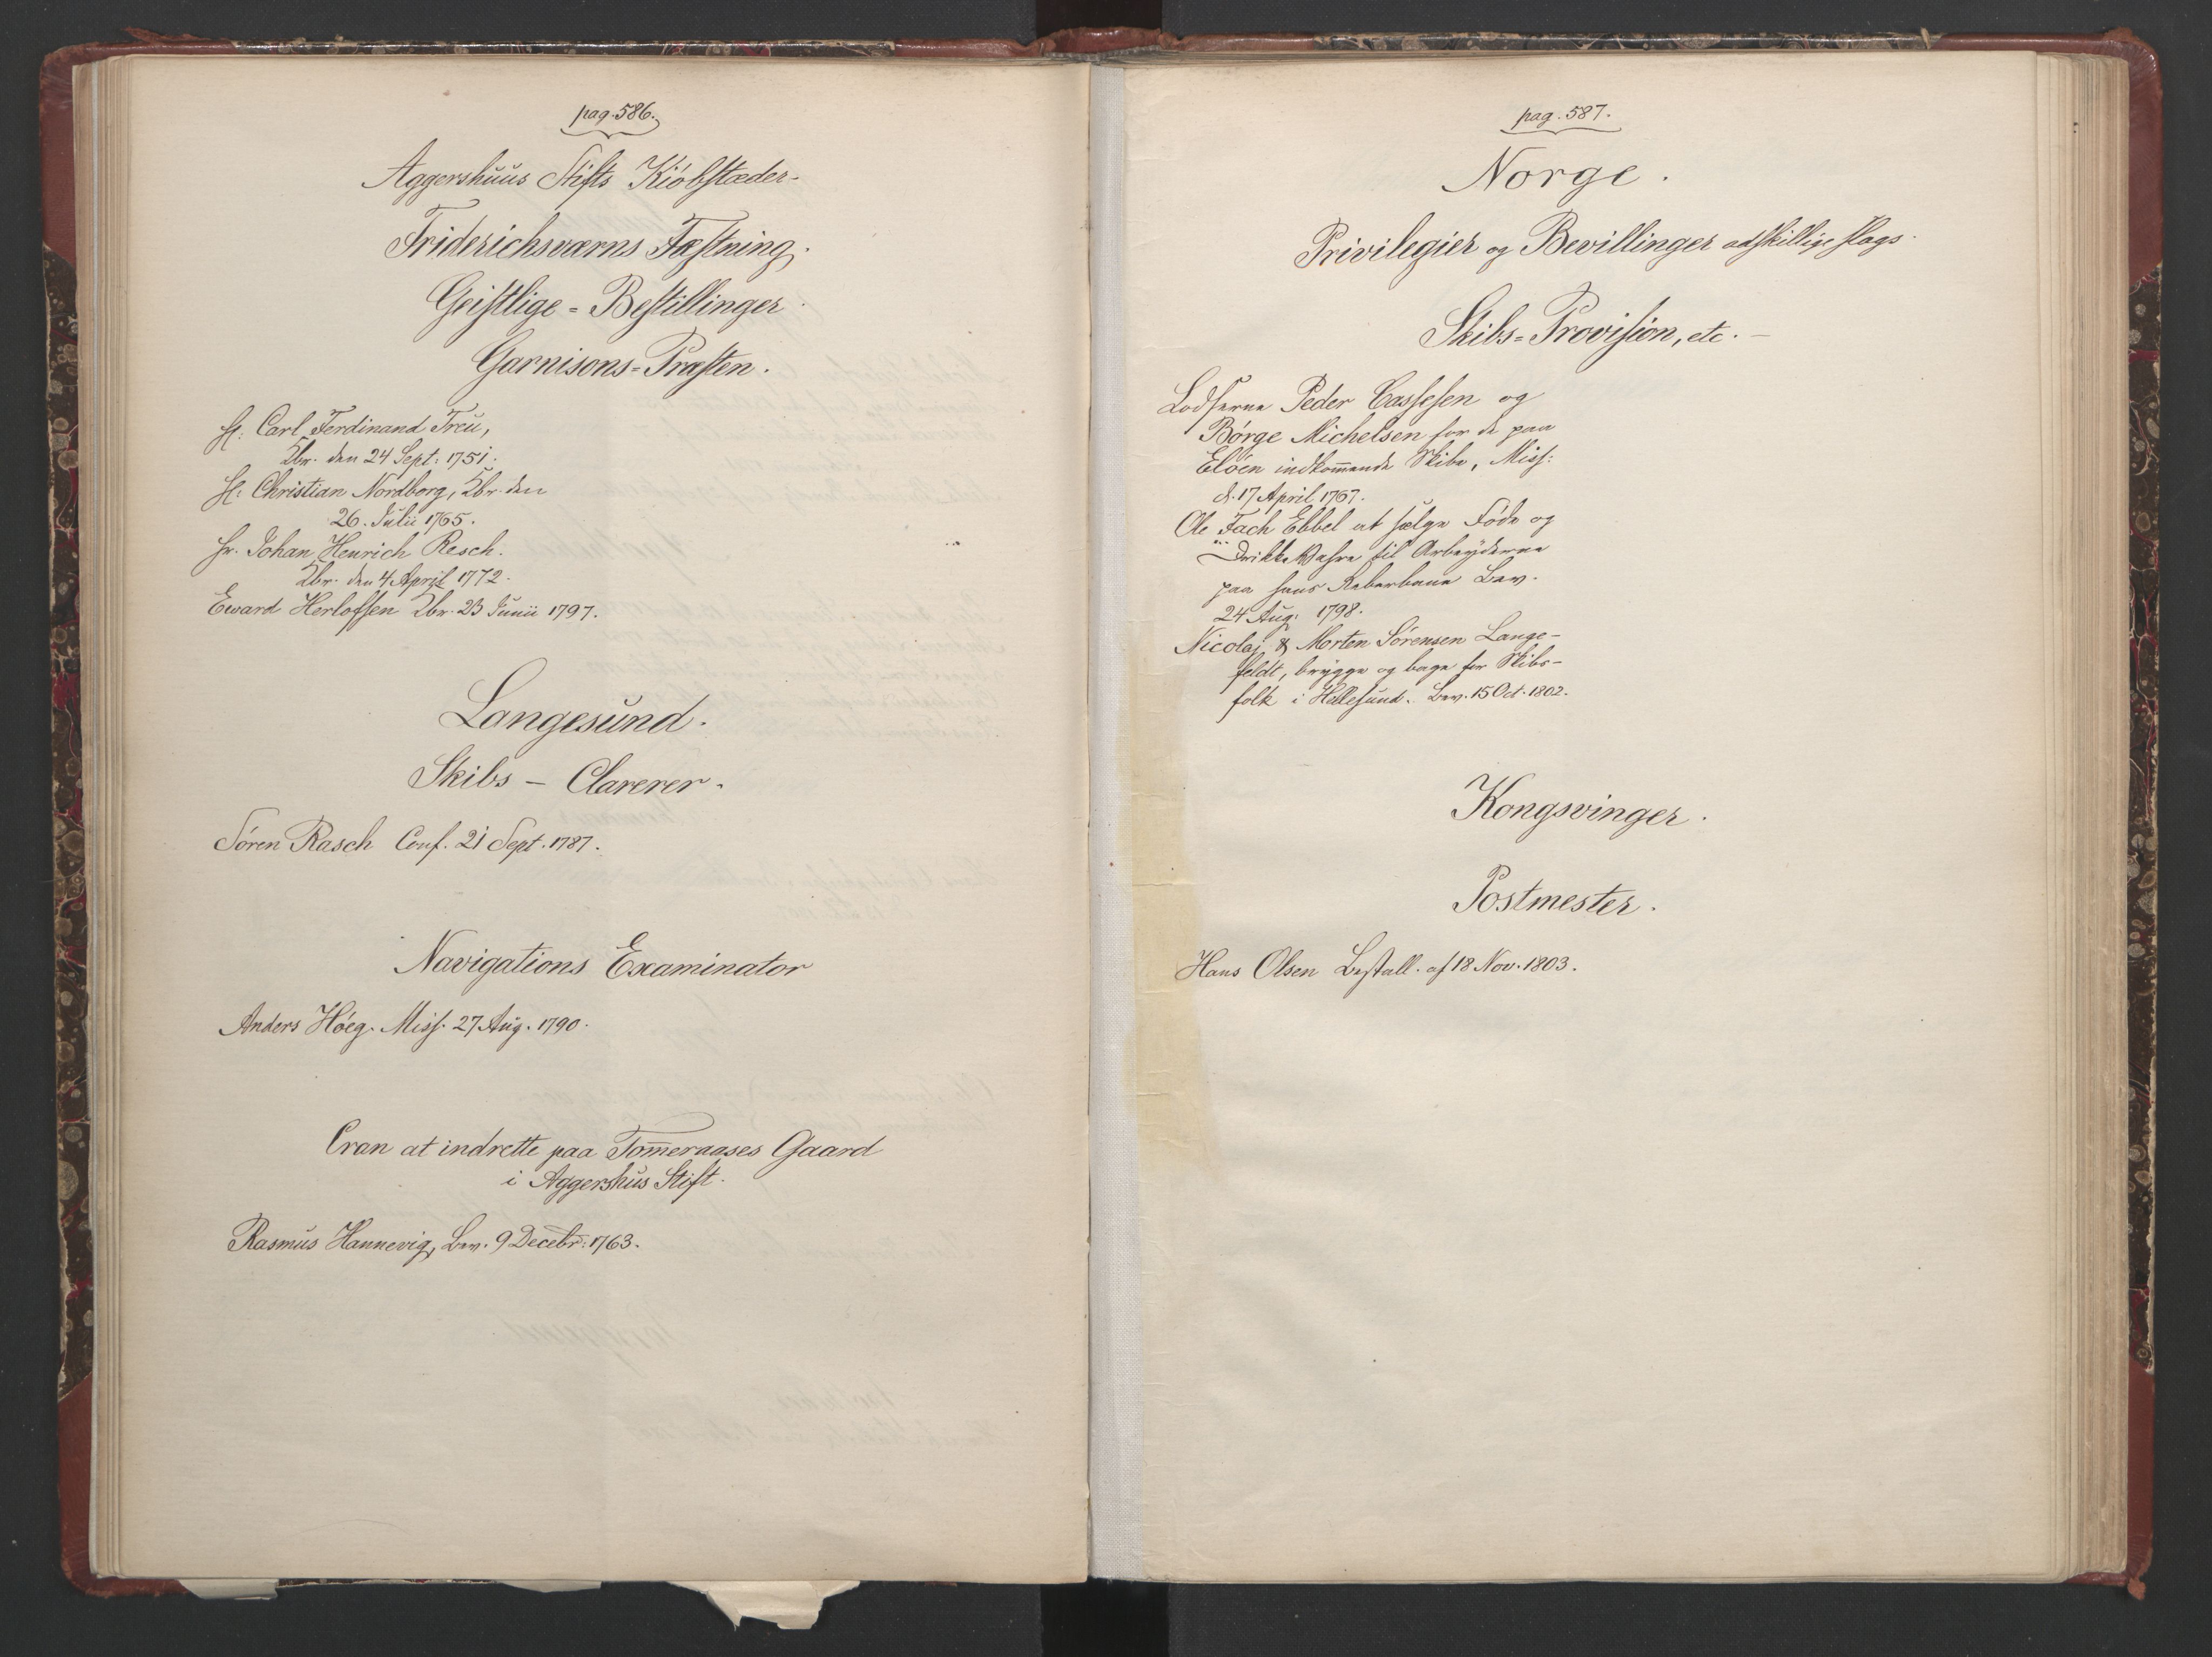 pag. 586.
Aggershuus Stifts Kiöbstæder.
Friderichsværns Fæstning.
Geistlige = Bestillinger.
Garnisons = Præsten.
Hr. Carl Ferdinand Treu,
Kbr. den 24 Sept: 1751.
Hr. Christian Nordborg, Kbr. den
26. Julii 1765.
Hr. Johan Henrich Resch.
Kbr. den 4 April 1772.
Eward Herlofsen Kbr. 23 Junii 1797.
Langesund.
Skibs – Clarerer.
Sören Rasch Conf. 21 Sept. 1787.
Navigations Examinator
Anders Höeg. Miss. 27 Aug. 1790.
Cran at indrette paa Tom̅eraases Gaard
i Aggershus Stift.
Rasmus Hannevig, Bev. 9 Decebr: 1763.
pag. 587.
Norge.
Privilegier og Bevillinger adskillige slags.
Skibs = Provision, etc. –
Lodserne Peder Cassesen og
Börge Michelsen for de paa
Elöen indkom̅ende Skibe, Miss:
d. 17 April 1767.
Ole Fach Ebbel at sælge Föde og
Drikke Vahre til Arbeyderne
paa hans Reberbane Bev.
24 Aug: 1798.
Nicolai & Morten Sörensen Lange-
feldt, brygge og bage for Skibs-
folk i Hellesund. Bev. 15 Oct. 1802.
Kongsvinger.
Postmester.
Hans Olsen Bestall. af 18 Nov. 1803.